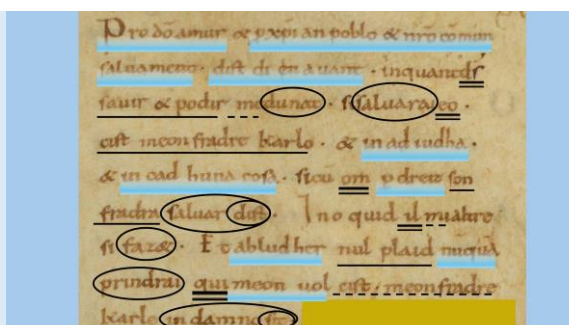 Pro dō amur & p xp̄ian poblo & nrō cōmun
saluament. dist di en auant. inquantds
sauir & podir medunat. sisaluaraieo.
cist meon fradre karlo. & in ad iudha.
& in cad huna cosa. sicū om p dreit son
fradra saluar dist. Ino quid il mialtre
si faz&. Et abludher nul plaid nuquā
prindrai qui meon uol cist. meonfradre
karle in damno sit.